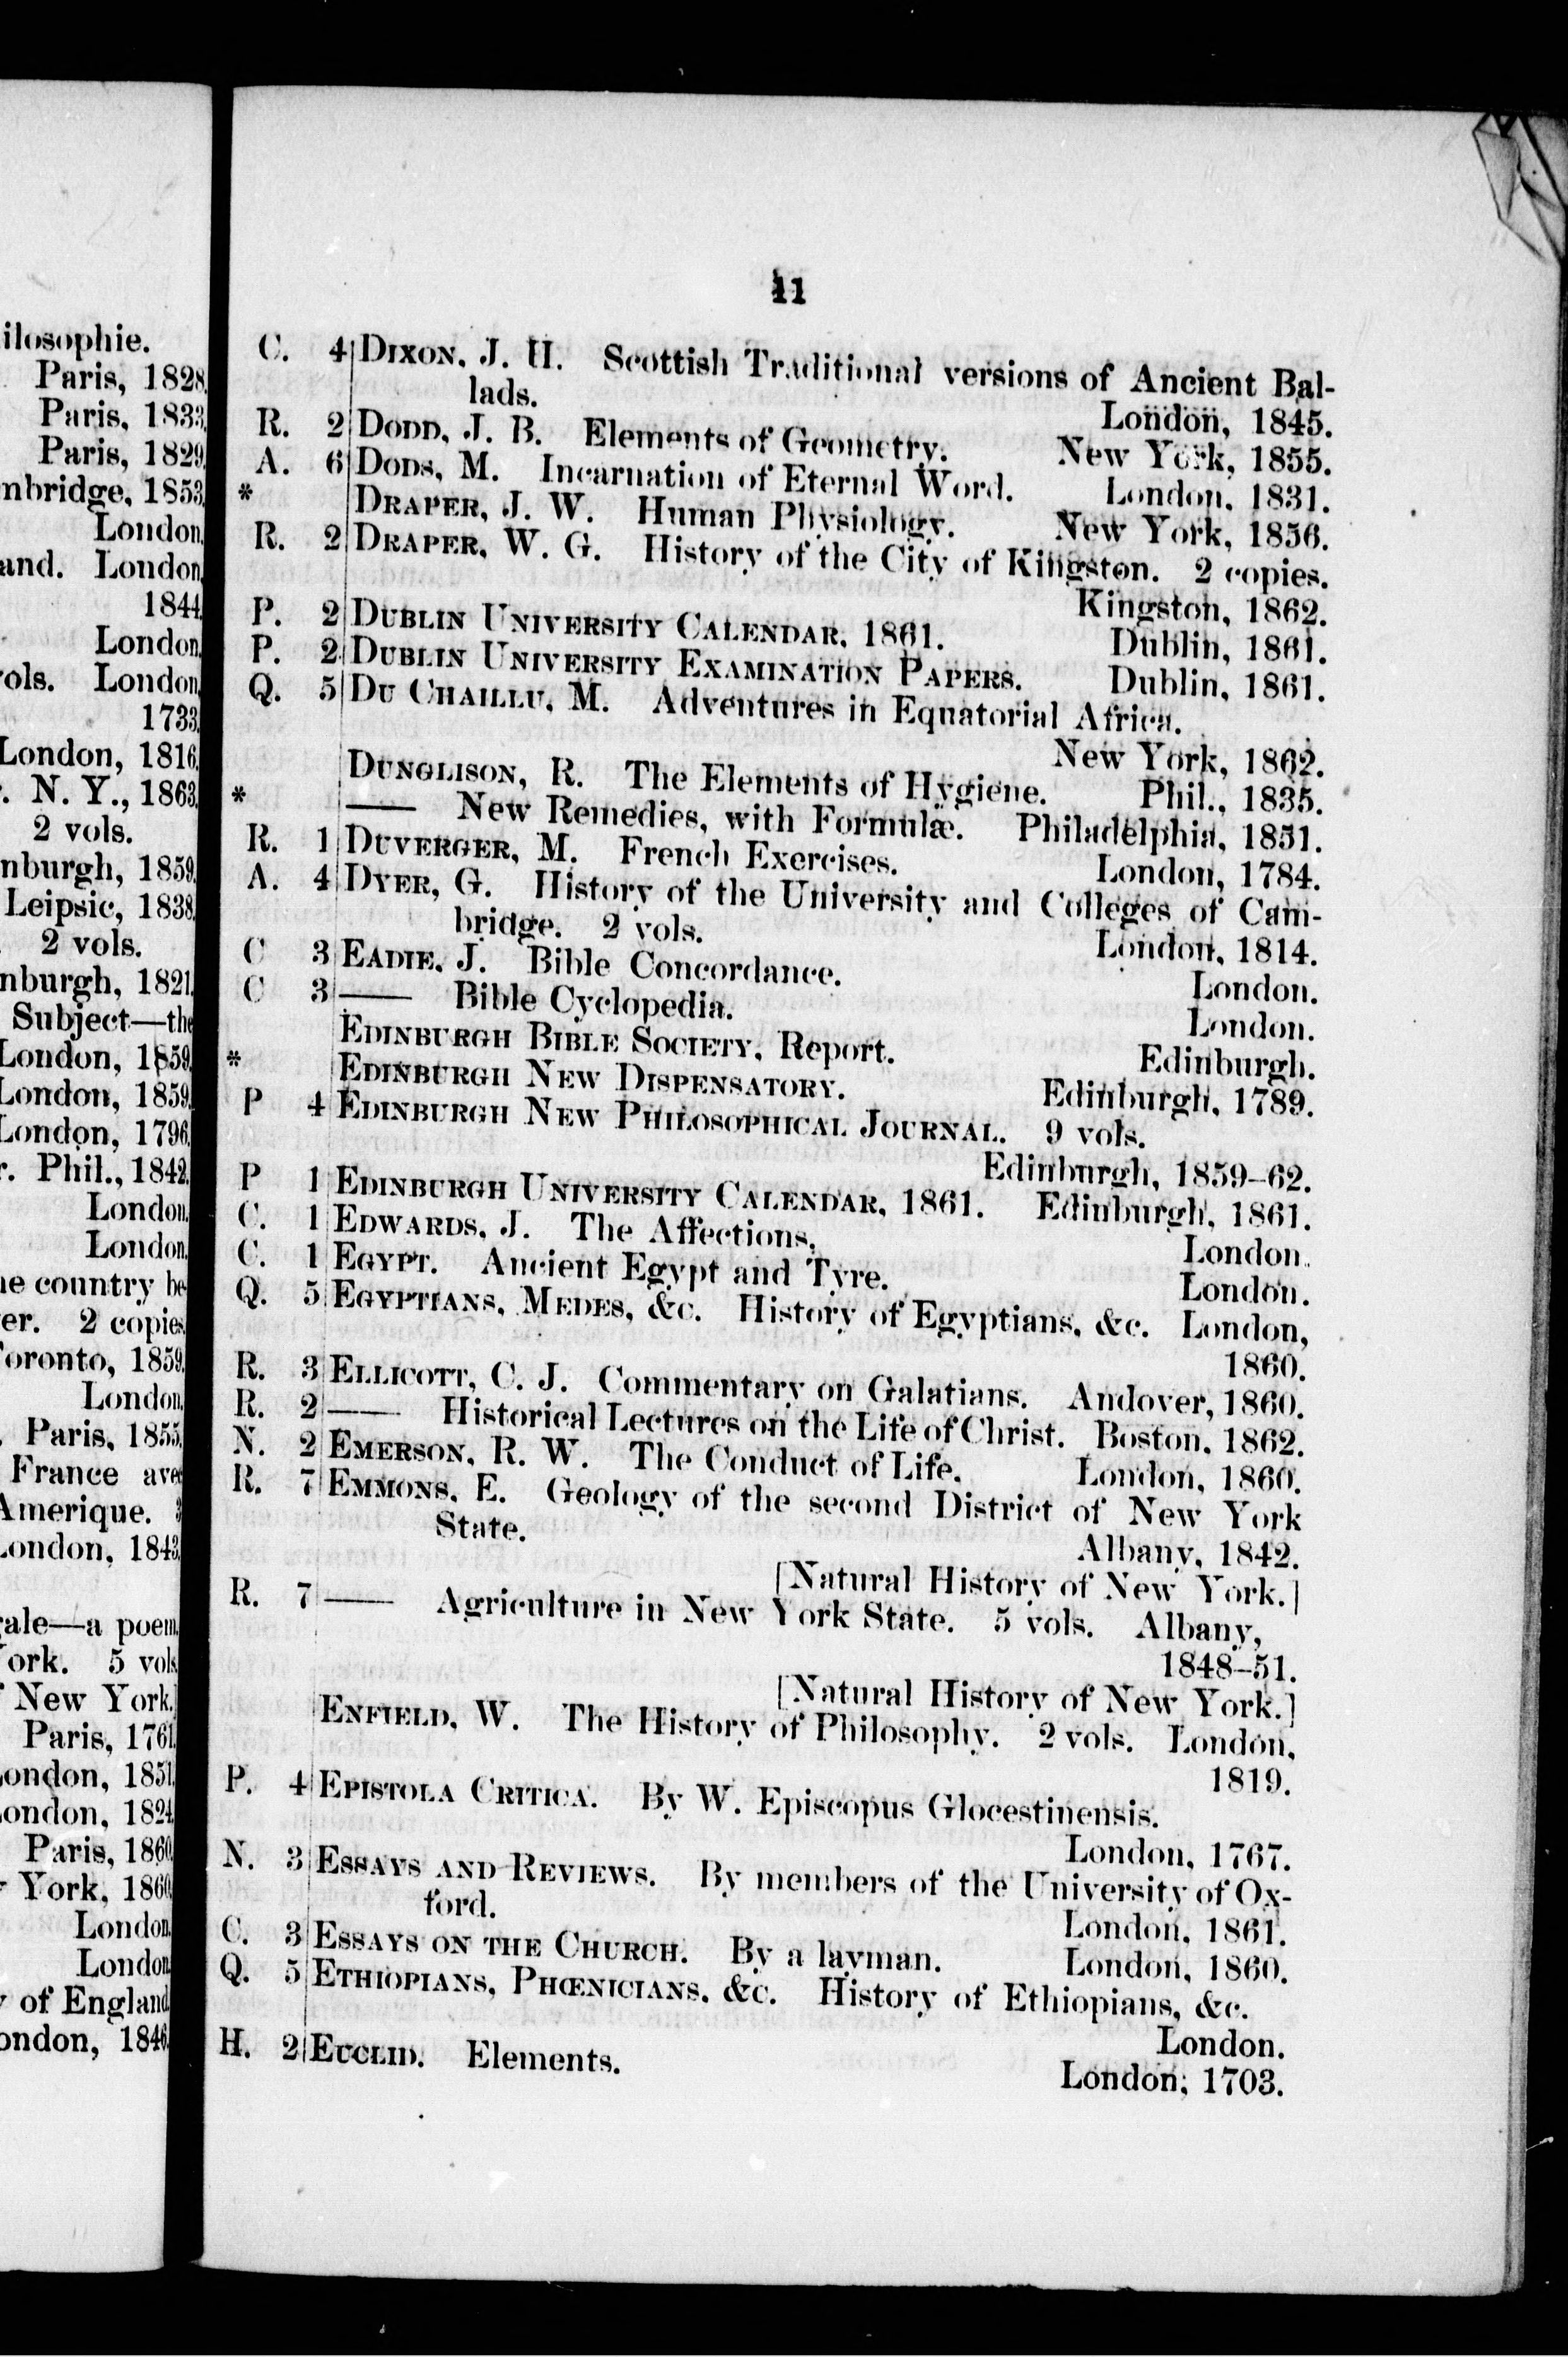 ilosophie.
Paris, 1828.
Paris, 1833.
Paris, 1829.
nbridge, 1853.
London.
and. London,
1844.
London.
ols. London,
1733.
London, 1816.
. N. Y., 1863.
2 vols.
nburgh, 1859.
Leipsic, 1838.
2 vols.
nburgh, 1821.
Subject—the
London, 1859.
London, 1859.
London, 1796.
r. Phil., 1842.
London.
London.
ne country be-
er. 2 copies.
oronto, 1859.
London.
Paris, 1855.
France avec
Amerique. 3
London, 1843.
ale—a poem.
ork. 5 vols.
New York.]
Paris, 1761.
ondon, 1851.
ondon, 1824.
Paris, 1860.
York, 1860.
London.
London.
of England.
ondon, 1846.
11
C. 4 DIXON, J. H. Scottish Traditional versions of Ancient Bal-
lads. London, 1845.
R. 2 DODD, J. B. Elements of Geometry. New York, 1855.
A. 6 DODS, M. Incarnation of Eternal Word. London, 1831.
* DRAPER, J. W. Human Physiology. New York, 1856.
R. 2 DRAPER, W. G. History of the City of Kingston. 2 copies.
Kingston, 1862.
P. 2 DUBLIN UNIVERSITY CALENDAR, 1861. Dublin, 1861.
P. 2 DUBLIN UNIVERSITY EXAMINATION PAPERS. Dublin, 1861.
Q. 5 DU CHAILLU, M. Adventures in Equatorial Africa.
New York, 1862.
DUNGLISON, R. The Elements of Hygiene. Phil., 1835.
* —— New Remedies, with Formulæ. Philadelphia, 1851.
R. 1 DUVERGER, M. French Exercises. London, 1784.
A. 4 DYER, G. History of the University and Colleges of Cam-
bridge. 2 vols. London, 1814.
C 3 EADIE, J. Bible Concordance. London.
C 3 —— Bible Cyclopedia. London.
EDINBURGH BIBLE SOCIETY, Report. Edinburgh.
* EDINBURGH NEW DISPENSATORY. Edinburgh, 1789.
P 4 EDINBURGH NEW PHILOSOPHICAL JOURNAL. 9 vols.
Edinburgh, 1859–62.
P 1 EDINBURGH UNIVERSITY CALENDAR, 1861. Edinburgh, 1861.
C. 1 EDWARDS, J. The Affections. London.
C. 1 EGYPT. Ancient Egypt and Tyre. London.
Q. 5 EGYPTIANS, MEDES, &c. History of Egyptians, &c. London,
1860.
R. 3 ELLICOTT, C. J. Commentary on Galatians. Andover, 1860.
R. 2 —— Historical Lectures on the Life of Christ. Boston, 1862.
N. 2 EMERSON, R. W. The Conduct of Life. London, 1860.
R. 7 EMMONS, E. Geology of the second District of New York
State. Albany, 1842.
[Natural History of New York.]
R. 7 —— Agriculture in New York State. 5 vols. Albany,
1848–51.
[Natural History of New York.]
ENFIELD, W. The History of Philosophy. 2 vols. London,
1819.
P. 4 EPISTOLA CRITICA. By W. Episcopus Glocestinensis.
London, 1767.
N. 3 ESSAYS AND REVIEWS. By members of the University of Ox-
ford. London, 1861.
C. 3 ESSAYS ON THE CHURCH. By a layman. London, 1860.
Q. 5 ETHIOPIANS, PHŒNICIANS, &c. History of Ethiopians, &c.
London.
H. 2 EUCLID. Elements. London, 1703.